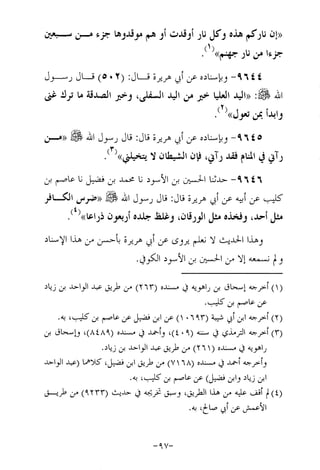 «إن ناركم هذه وكل نار أوقدت أو هم موقدوها جزء مـن سـبعين
جزءا من نار جهنم»(١).
٩٦٤٤- وبإسناده عن أبي هريرة قـال: (٥٠٢) قـال رسـول
الله ﷺ: «اليد العليا خير من اليد السفلى، وخير الصدقة ما ترك غنى
وابدأ بمن تعول»(٢).
٩٦٤٥- وبإسناده عن أبي هريرة قال: قال رسول الله ﷺ «مـن
رآني في المنام فقد رآني، فإن الشيطان لا يتخيلني»(٣).
٩٦٤٦- حدثنا الحسين بن الأسود نا محمد بن فضيل نا عاصم بن
كليب عن أبيه عن أبي هريرة قال: قال رسول الله ﷺ «ضرس الكـافر
مثل أحد، وفخذه مثل الورقان، وغلظ جلده أربعون ذراعا»(٤).
وهذا الحديث لا نعلم يروى عن أبي هريرة بأحسن من هذا الإسناد
ولم نسمعه إلا من الحسين بن الأسود الكوفي.
(١) أخرجه إسحاق بن راهويه في مسنده (٢٦٣) من طريق عبد الواحد بن زياد
عن عاصم بن كليب.
(٢) أخرجه ابن أبي شيبة (١٠٦٩٣) عن ابن فضيل عن عاصم بن كليب، به.
(٣) أخرجه الترمذي في سننه (٤٠٩)، وأحمد في مسنده (٨٤٨٩)، وإسحاق بن
راهويه في مسنده (٢٦١) من طريق عبد الواحد بن زياد.
وأخرجه أحمد في مسنده (٧١٦٨) من طريق ابن فضيل، كلاهما (عبد الواحد
ابن زياد وابن فضيل) عن عاصم بن كليب، به.
(٤) لم أقف عليه من هذا الطريق، وسبق تخريجه في حديث (٩٢٣٣) من طريـق
الأعمش عن أبي صالح، به.
-٩٧-